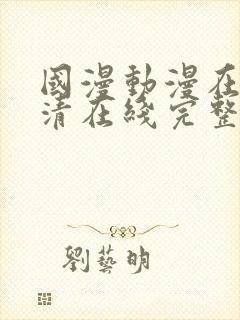 國漫動漫在
清在綫完整
劉藝明